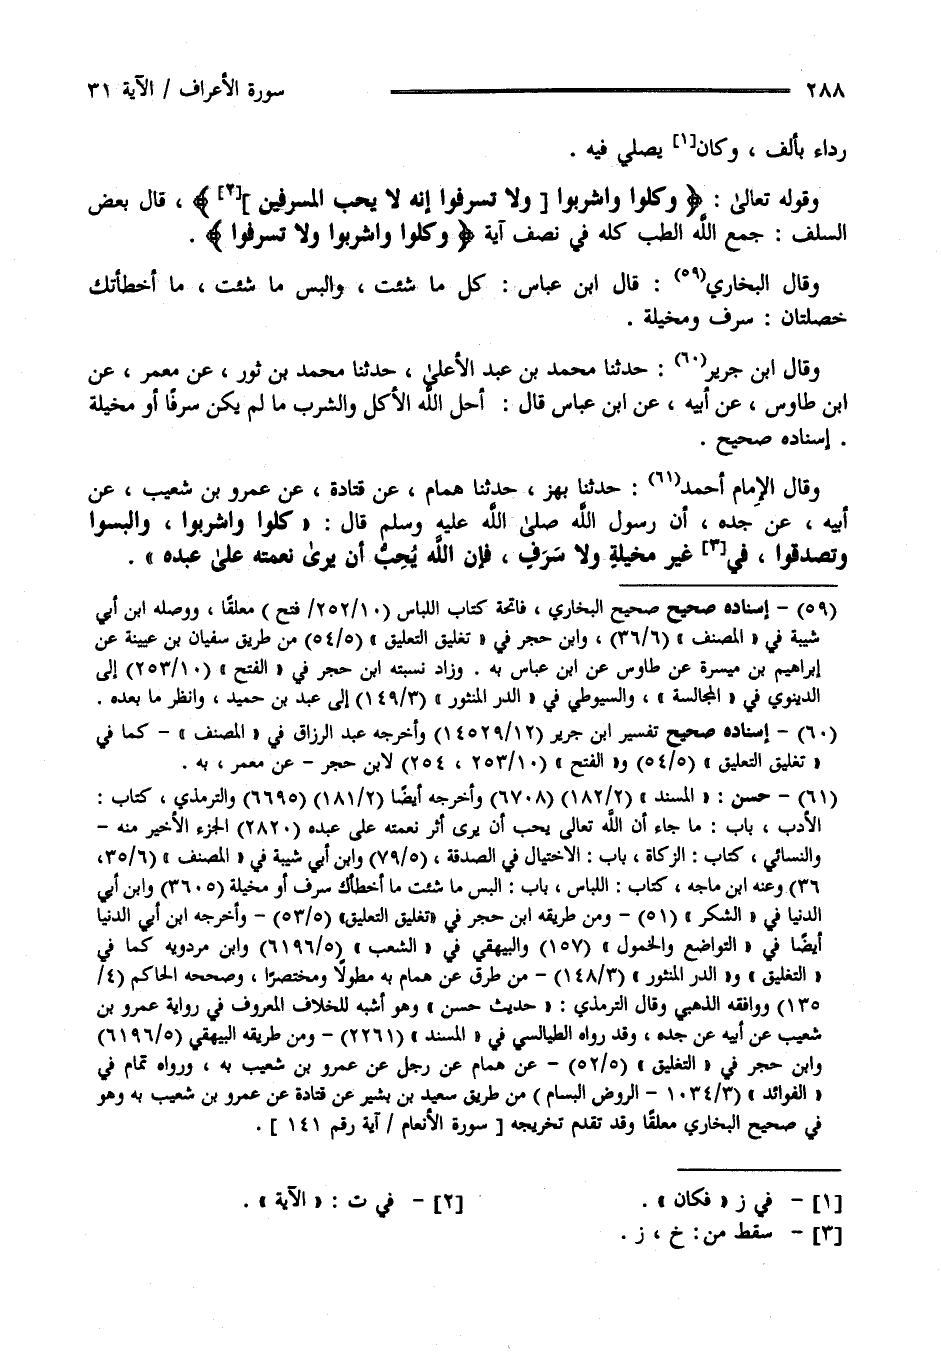 ٢٨٨ سورة الأعراف / الآية ٣١
رداء بألف ، وكان[١] يصلي فيه .
وقوله تعالىٰ : ﴿ وكلوا واشربوا [ ولا تسرفوا إنه لا يحب المسرفين ][٢] ﴾ ، قال بعض
السلف : جمع اللَّه الطب كله في نصف آية ﴿ وكلوا واشربوا ولا تسرفوا ﴾ .
وقال البخاري(٥٩) : قال ابن عباس : كل ما شئت ، والبس ما شئت ، ما أخطأتك
خصلتان : سرف ومخيلة .
وقال ابن جرير(٦٠) : حدثنا محمد بن عبد الأعلىٰ ، حدثنا محمد بن ثور ، عن معمر ، عن
ابن طاوس ، عن أبيه ، عن ابن عباس قال : أحل اللَّه الأكل والشرب ما لم يكن سرفًا أو مخيلة
. إسناده صحيح .
وقال الإمام أحمد(٦١) : حدثنا بهز ، حدثنا همام ، عن قتادة ، عن عمرو بن شعيب ، عن
أبيه ، عن جده ، أن رسول اللَّه صلىٰ اللَّه عليه وسلم قال : « كلوا واشربوا ، والبسوا
وتصدقوا ، في[٣] غير مخيلةٍ ولا سَرَفٍ ، فإن اللَّه يُحِبُّ أن يرىٰ نعمته علىٰ عبده » .
(٥٩) - إسناده صحيح صحيح البخاري ، فاتحة كتاب اللباس (٢٥٢/١٠/ فتح ) معلقًا ، ووصله ابن أبي
شيبة في « المصنف » (٣٦/٦) ، وابن حجر في « تغليق التعليق » (٥٤/٥) من طريق سفيان بن عيينة عن
إبراهيم بن ميسرة عن طاوس عن ابن عباس به . وزاد نسبته ابن حجر في « الفتح » (٢٥٣/١٠) إلى
الدينوي في « المجالسة » ، والسيوطي في « الدر المنثور » (١٤٩/٣) إلى عبد بن حميد ، وانظر ما بعده .
(٦٠) - إسناده صحيح تفسير ابن جرير (١٤٥٢٩/١٢) وأخرجه عبد الرزاق في « المصنف » - كما في
« تغليق التعليق » (٥٤/٥) و« الفتح » (٢٥٣/١٠ ، ٢٥٤) لابن حجر - عن معمر ، به .
(٦١) - حسن : « المسند » (١٨٢/٢) (٦٧٠٨) وأخرجه أيضًا (١٨١/٢) (٦٦٩٥) والترمذي ، كتاب :
الأدب ، باب : ما جاء أن اللَّه تعالى يحب أن يرى أثر نعمته على عبده (٢٨٢٠) الجزء الأخير منه -
والنسائي ، كتاب : الزكاة ، باب : الاختيال في الصدقة ، (٧٩/٥) وابن أبي شيبة في « المصنف » (٣٥/٦،
٣٦) وعنه ابن ماجه ، كتاب : اللباس ، باب : البس ما شئت ما أخطأك سرف أو مخيلة (٣٦٠٥) وابن أبي
الدنيا في « الشكر » (٥١) - ومن طريقه ابن حجر في «تغليق التعليق» (٥٣/٥) - وأخرجه ابن أبي الدنيا
أيضًا في « التواضع والخمول » (١٥٧) والبيهقي في « الشعب » (٦١٩٦/٥) وابن مردويه كما في
« التغليق » و« الدر المنثور » (١٤٨/٣) - من طرق عن همام به مطولًا ومختصرًا ، وصححه الحاكم (٤/
١٣٥) ووافقه الذهبي وقال الترمذي : « حديث حسن » وهو أشبه للخلاف المعروف في رواية عمرو بن
شعيب عن أبيه عن جده ، وقد رواه الطيالسي في « المسند » (٢٢٦١) - ومن طريقه البيهقي (٦١٩٦/٥)
وابن حجر في « التغليق » (٥٢/٥) - عن همام عن رجل عن عمرو بن شعيب به ، ورواه تمام في
« الفوائد » (١٠٣٤/٣ - الروض البسام ) من طريق سعيد بن بشير عن قتادة عن عمرو بن شعيب به وهو
في صحيح البخاري معلقًا وقد تقدم تخريجه [ سورة الأنعام / آية رقم ١٤١ ] .
[١] - في ز « فكان » . [٢] - في ت : « الآية » .
[٣] - سقط من : خ ، ز .